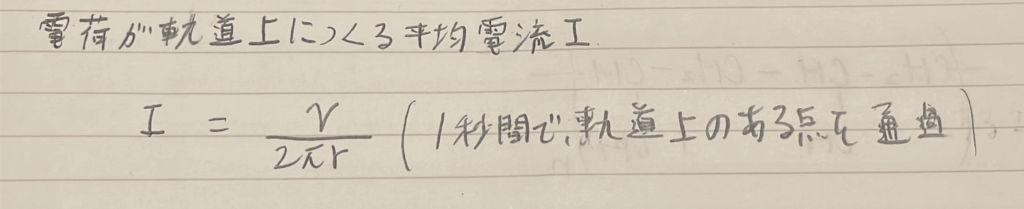 電荷が軌道上につくる平均電流I
I = v/2πr (1秒間で、軌道上のある点を通過)